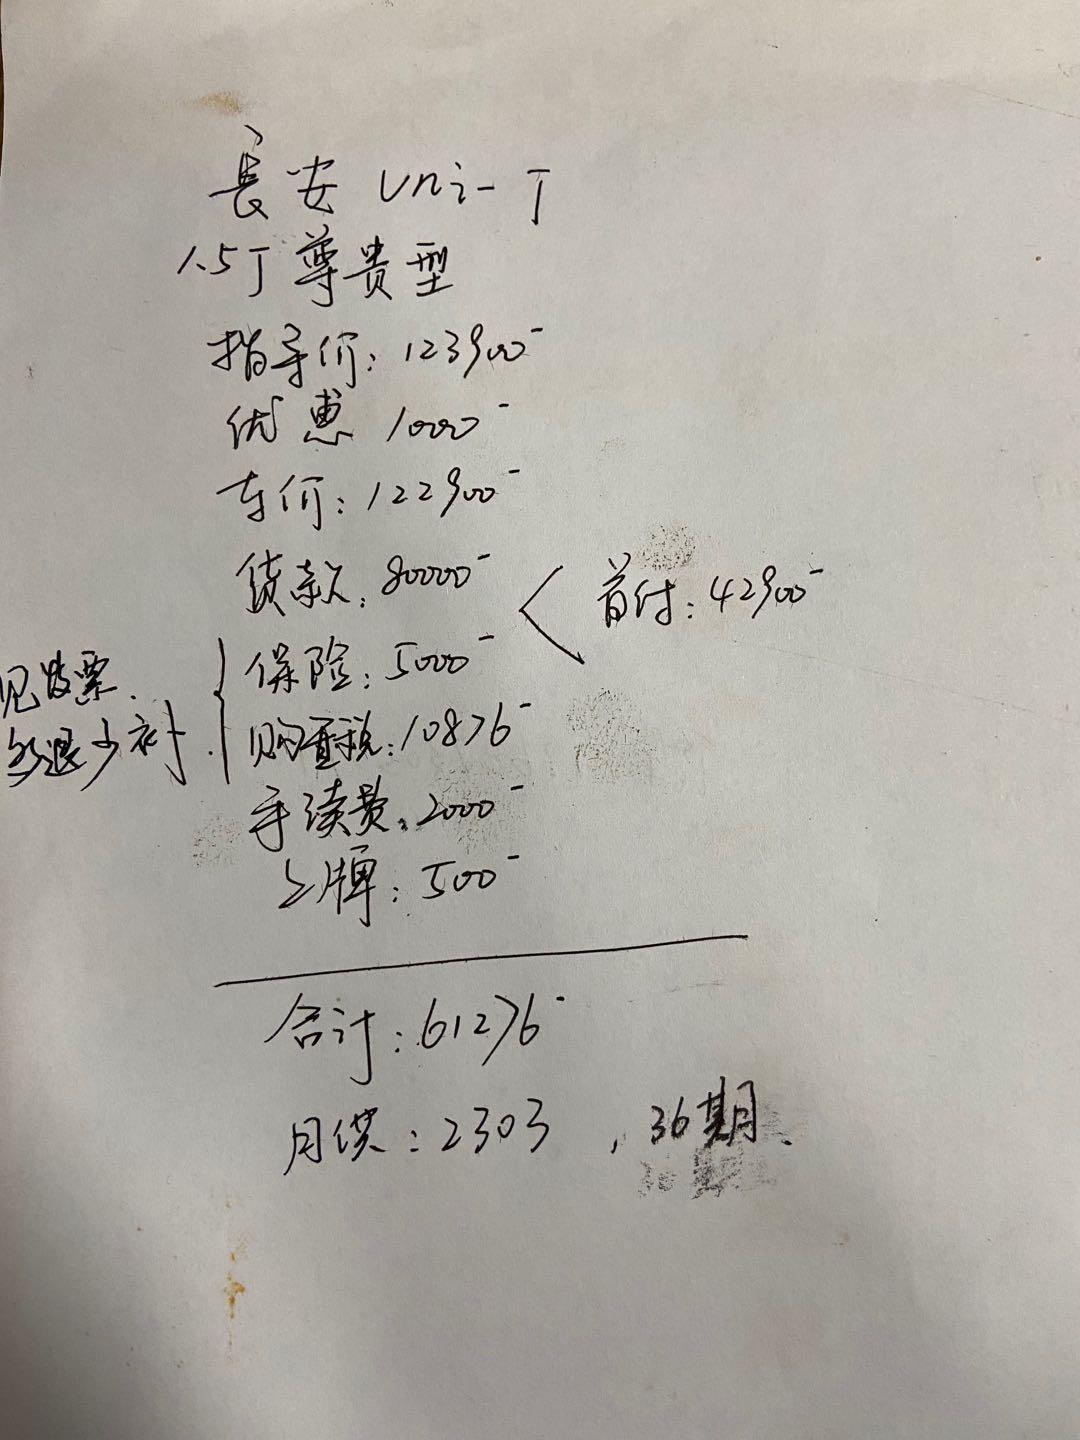 長安 Uni-T
1.5T尊贵型
指导价：123900-
优惠 1000-
车价：122900-
贷款：80000-
首付：42900-
保险：5000-
见发票.
多退少补.
购置税：10876-
手续费：2000-
上牌：500-
合计：61276-
月供：2303 ，36期.